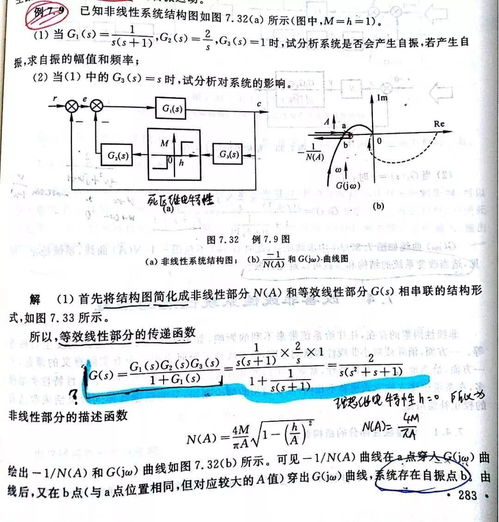 例7.9 已知非线性系统结构图如图 7.32(a) 所示(图中,M=h=1)。
(1) 当 G₁(s)=1/s(s+1),G₂(s)=2/s,G₃(s)=1 时,试分析系统是否会产生自振,若产生自
振,求自振的幅值和频率;
(2) 当(1) 中的 G₃(s)=s 时,试分析对系统的影响。
r e G₁(s) c
G₂(s) M h G₃(s)
死区继电特性
(a)
Im
A a Re
b 0
-1/N(A)
ω
G(jω)
(b)
图 7.32 例 7.9 图
(a) 非线性系统结构图; (b) -1/N(A) 和 G(jω) 曲线图
解 (1) 首先将结构图简化成非线性部分 N(A) 和等效线性部分 G(s) 相串联的结构形
式,如图 7.33 所示。
所以,等效线性部分的传递函数
? G(s)=G₁(s)G₂(s)G₃(s)/1+G₁(s)=1/s(s+1)×2/s×1/1+1/s(s+1)=2/s(s²+s+1)
理想继电特性 h=0 所以为
非线性部分的描述函数
N(A)=4M/πA√1-(h/A)² N(A)=4M/πA
绘出 -1/N(A) 和 G(jω) 曲线如图 7.32(b) 所示。可见 -1/N(A) 曲线在 a 点穿入 G(jω) 曲
线后,又在 b 点(与 a 点位置相同,但对应较大的 A 值) 穿出 G(jω) 曲线,系统存在自振点 b。由
· 283 ·